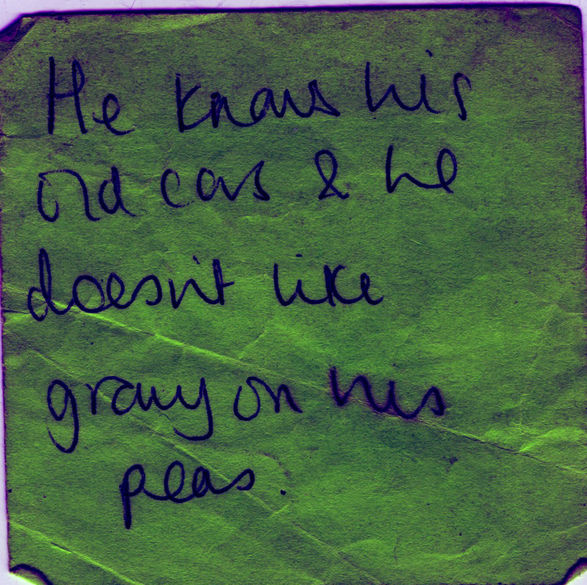 He knows his
old cars & he
doesn't like
gravy on his
peas.